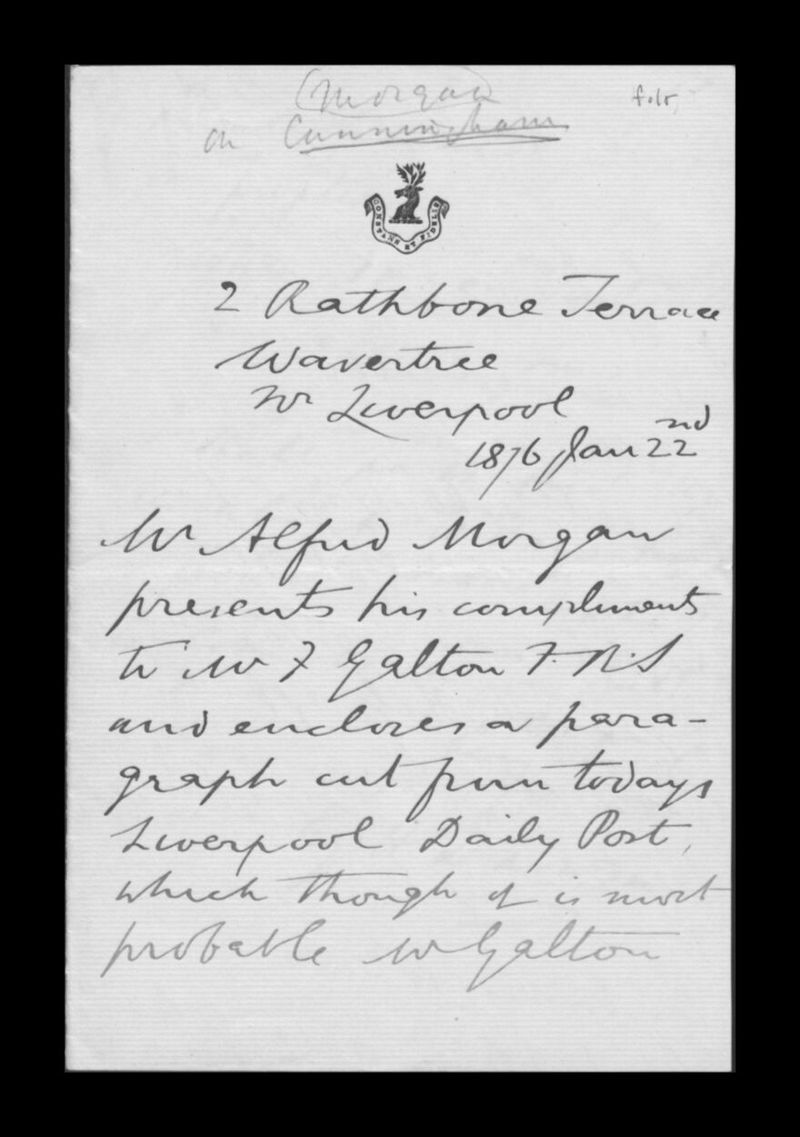 (Morgan
on Cunningham
CONSTANS ET FIDELIS
2 Rathbone Terrace
Wavertree
Nr Liverpool
1876 Jan 22nd
Mr Alfred Morgan
presents his compliments
to Mr F Galton F.R.S
and encloses a para-
graph cut from todays
Liverpool Daily Post,
which though it is most
probable Mr Galton